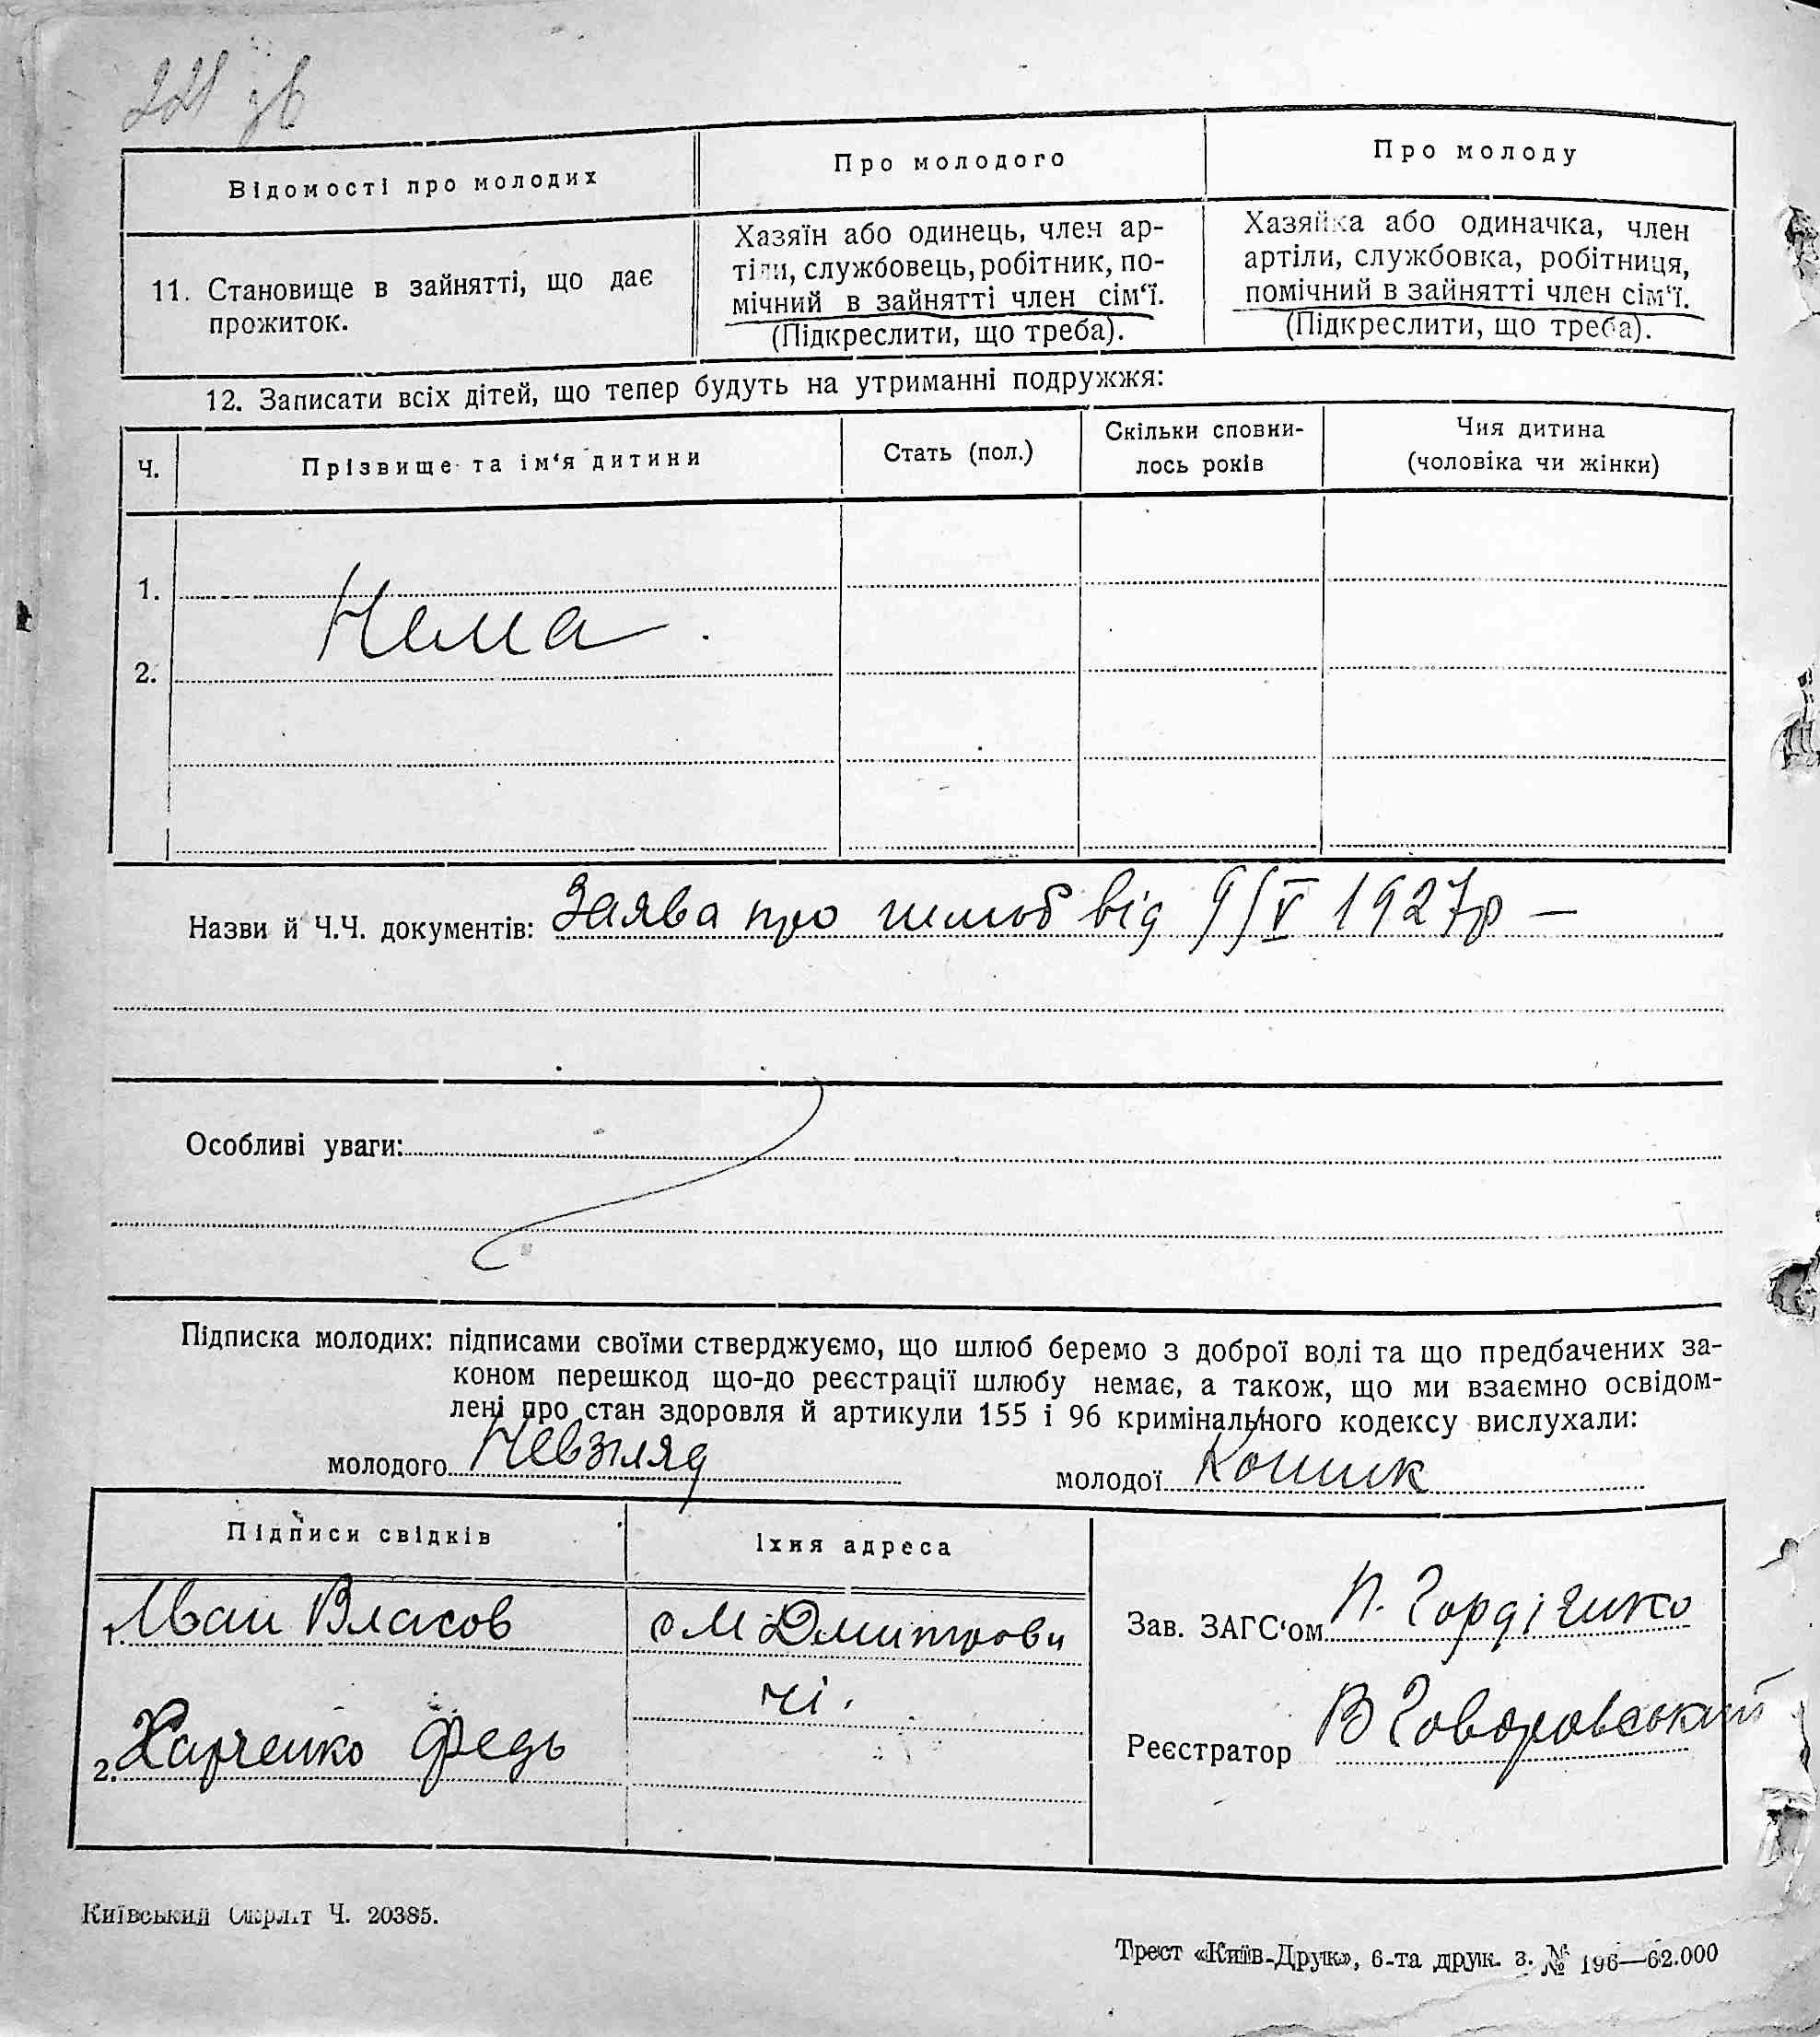 221 зв
Відомості про молодих
Про молодого
Про молоду
11. Становище в зайнятті, що дає
прожиток.
Хазяїн або одинець, член ар-
тіли, службовець, робітник, по-
мічний в зайнятті член сім‘ї.
(Підкреслити, що треба).
Хазяйка або одиначка, член
артіли, службовка, робітниця,
помічний в зайнятті член сім‘ї.
(Підкреслити, що треба).
12. Записати всіх дітей, що тепер будуть на утриманні подружжя:
Ч.
Прізвище та ім‘я дитини
Стать (пол.)
Скільки сповни-
лось років
Чия дитина
(чоловіка чи жінки)
1.
Нема.
2.
Назви й Ч.Ч. документів: Заява про шлюб від 9/V 1927р —
Особливі уваги:
Підписка молодих: підписами своїми стверджуємо, що шлюб беремо з доброї волі та що предбачених за-
коном перешкод що-до реєстрації шлюбу немає, а також, що ми взаємно освідом-
лені про стан здоровля й артикули 155 і 96 кримінального кодексу вислухали:
молодого Невзгляд молодої Кошик
Підписи свідків
Їхня адреса
1. Иван Власов
с М Дмитрови
чі.
2. Харченко Федь
Зав. ЗАГС‘ом П. Гордієнко
Реєстратор В Говоровський
Київський Окрліт Ч. 20385.
Трест «Київ-Друк», 6-та друк. з. № 196—62.000